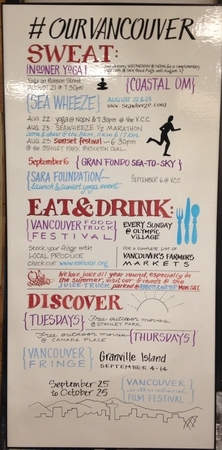 #OURVANCOUVER
SWEAT:
NOONER YOGA
every WEDNESDAY @ NOON
AUGUST 21 @ 7:30pm
{COASTAL OM}
{SEA WHEEZE}
AUGUST 22 & 23
www.seawheeze.com
AUG 22 yoga @ NOON & 7:30pm @ the V.C.C.
AUG 23 SEAWHEEZE ½ MARATHON
AUG 23 Sunset festival - 6:30pm
@ the STANLEY PARK BROCKTON OVAL
September 6 {GRAN FONDO SEA-TO-SKY}
{SARA FOUNDATION}
launch & sunset yoga event
SEPTEMBER 6 @ V.C.C.
EAT & DRINK:
VANCOUVER FOOD TRUCK
FESTIVAL
EVERY SUNDAY
@ OLYMPIC
VILLAGE
Stock your fridge with
LOCAL PRODUCE
check out www.eatlocal.org
FOR A COMPLETE LIST OF
VANCOUVER'S FARMERS
MARKETS
We love juice all year round, especially in
the summer, visit our friends @ the
JUICE TRUCK, parked @ ABBOTT & WATER MON-SAT
DISCOVER
{TUESDAYS} Free outdoor movies
@ STANLEY PARK
Free outdoor movies
@ CANADA PLACE
{THURSDAYS}
{VANCOUVER
FRINGE}
Granville Island
SEPTEMBER 4-14
September 25
to October 25
{VANCOUVER
INTERNATIONAL
FILM FESTIVAL}